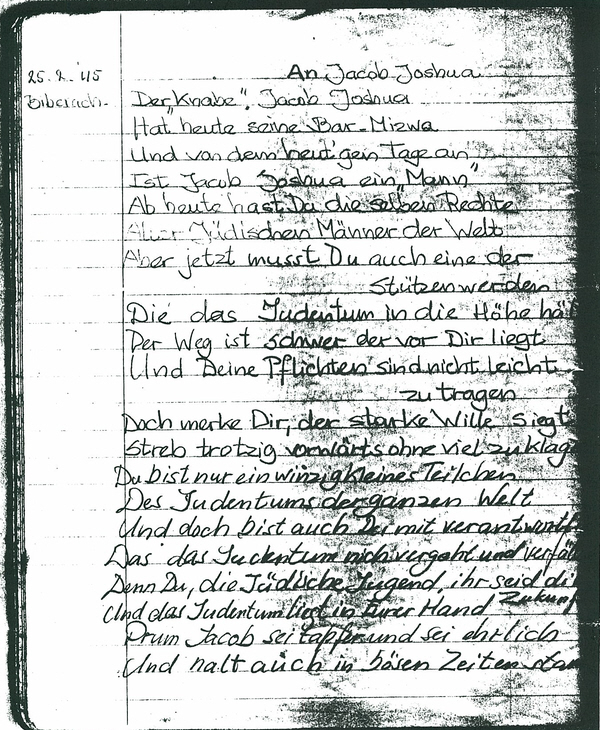 25.2.'45
Biberach.
An Jacob Joshua
Der „Knabe", Jacob Joshua
Hat heute seine Bar-Mizwa
Und von dem heut'gen Tage an
Ist Jacob Joshua ein „Mann"
Ab heute hast Du die selben Rechte
Aller Jüdischen Männer der Welt
Aber jetzt musst Du auch eine der
Stützen werden
Die das Judentum in die Höhe häl
Der Weg ist schwer der vor Dir liegt
Und Deine Pflichten sind nicht leicht
zu tragen
Doch merke Dir, der starke Wille siegt
Streb trotzig vorwärts ohne viel zu klag
Du bist nur ein winzig kleines Teilchen
Des Judentums der ganzen Welt
Und doch bist auch Du mit verantwortl
Das das Judentum nich vergeht und verfäl
Denn Du, die Jüdische Jugend, ihr seid di
Zukunf
Und das Judentum liegt in Eurer Hand
Drum Jacob sei tapfer und sei ehrlich
Und halt auch in bösen Zeiten stan